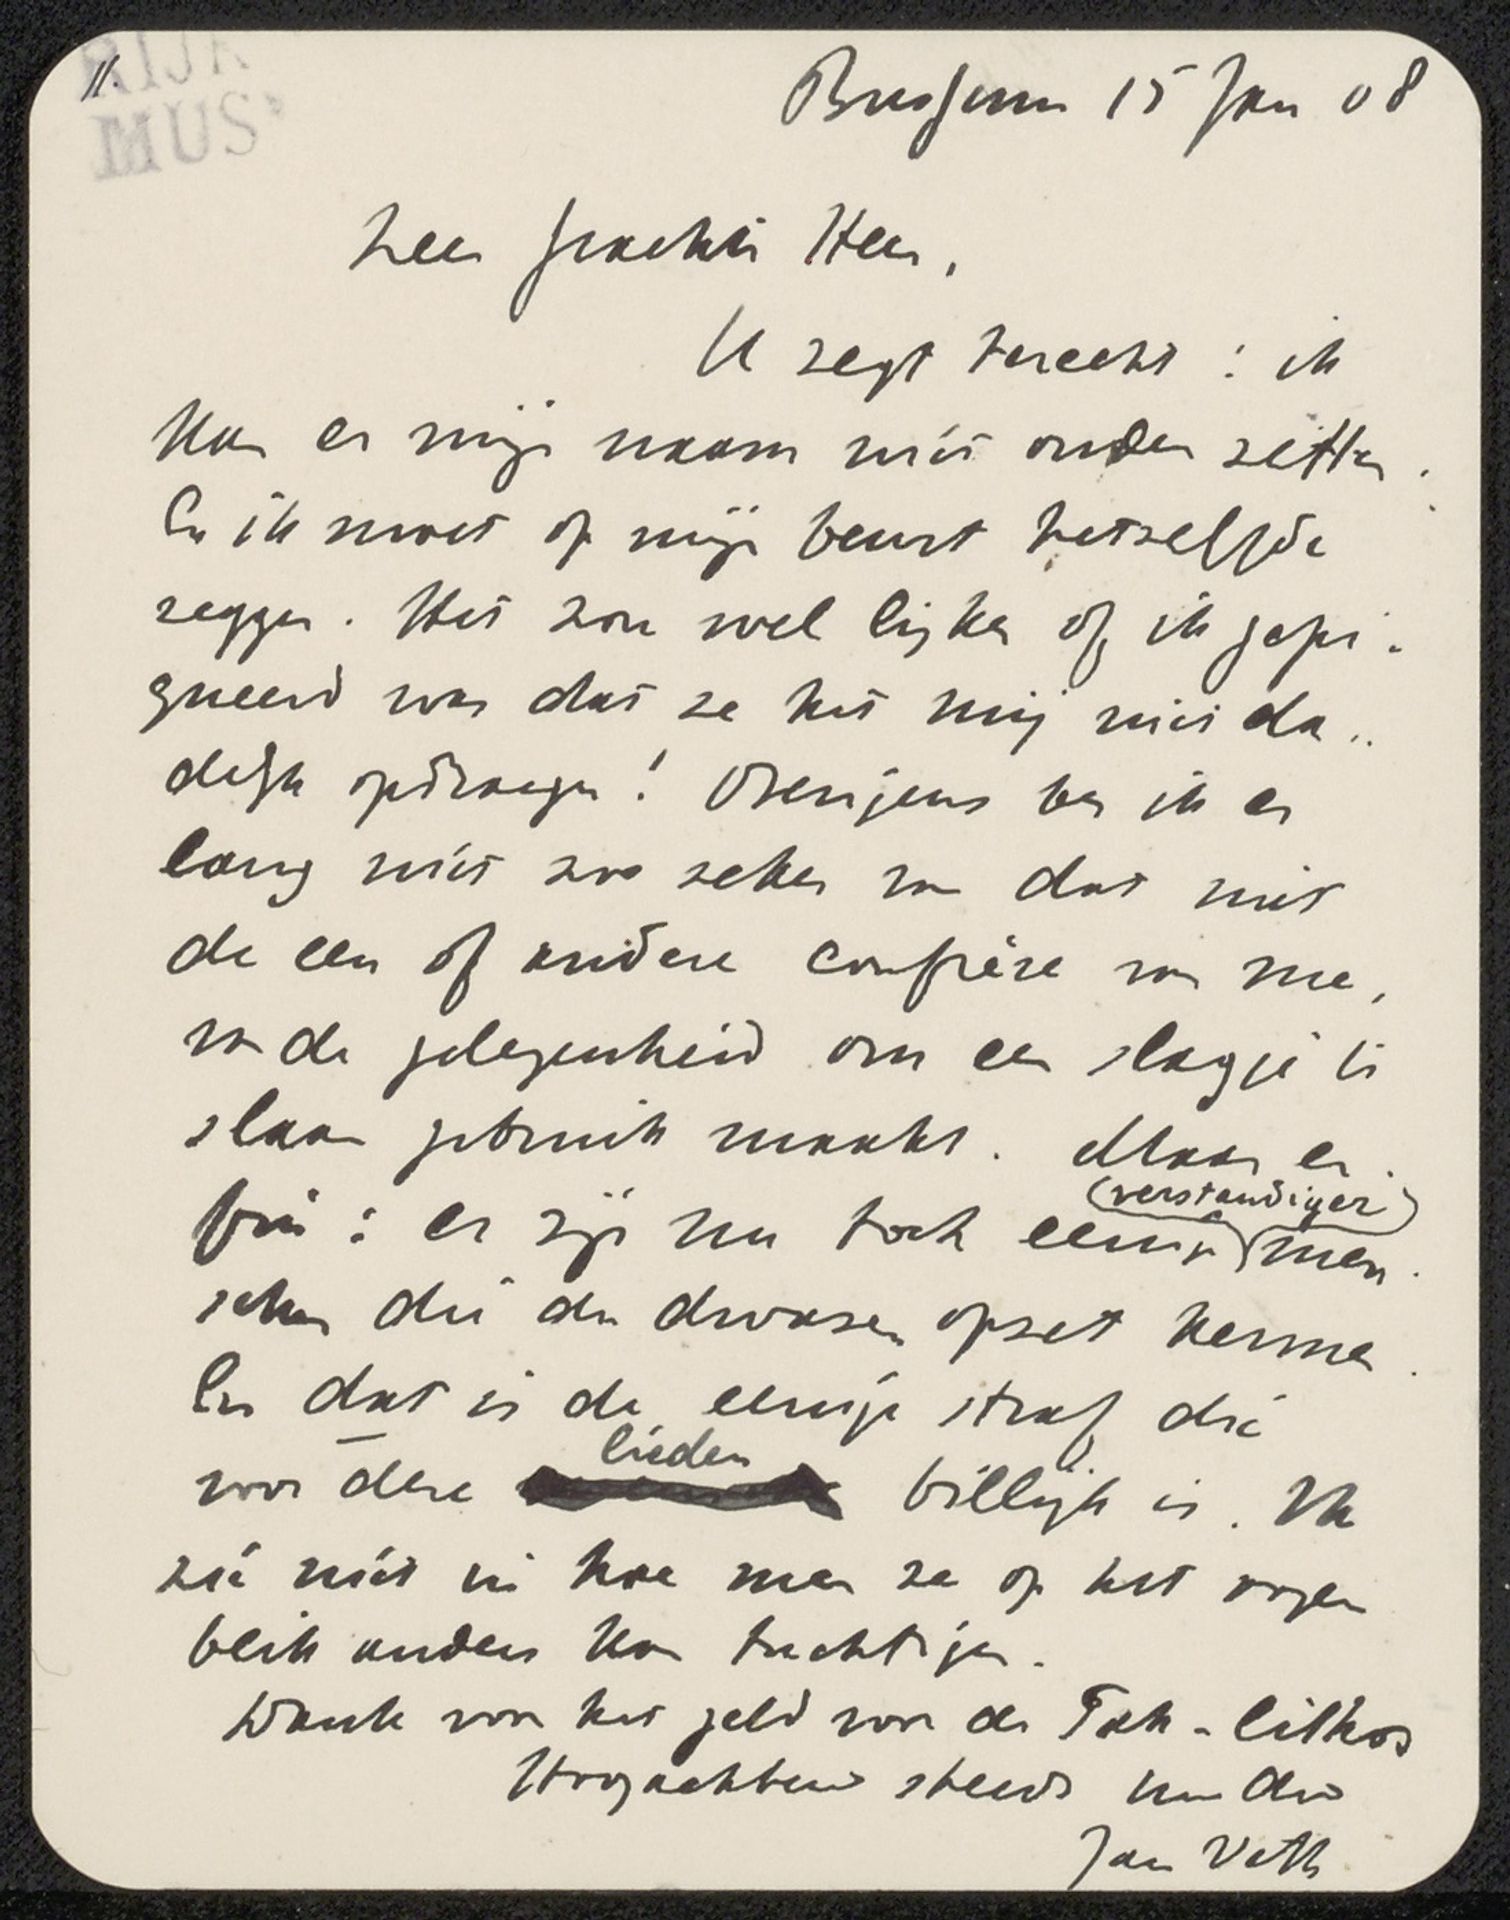 11.
RIJK
MUS
Bussum 15 Jan 08
Zeer geachte Heer,
U zegt terecht: ik
kan er mijn naam niet onder zetten.
En ik moet op mijn beurt hetzelfde
zeggen. Het zou wel lijken of ik gepi-
queerd was dat ze het mij niet da-
delijk opdroegen! Overigens ben ik er
lang niet zoo zeker van dat niet
de een of andere confrère van me,
van de gelegenheid om een slagje te
slaan gebruik maakt. Maar en-
fin: er zijn nu toch eenige (verstandiger) men-
schen die den dwazen opzet kennen.
En dat is de eenige straf die
voor deze lieden billijk is. Ik
zie niet in hoe men ze op het oogen
blik anders kan tuchtigen.
Dank voor het geld voor de Tak-litho's
Hoogachtend steeds uw dw
Jan Veth